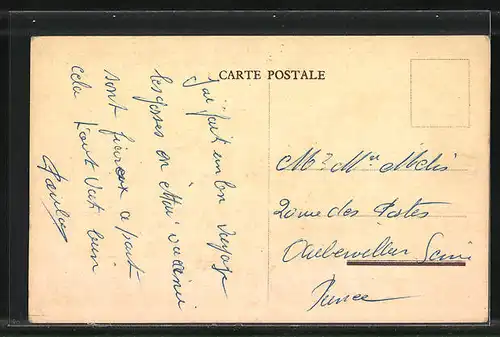 CARTE POSTALE
J'ai fait un bon voyage
les gosses en
sont fievreux a part
cela tout vat bien
Paulo
Mr Mme Melis
20 rue des Postes
Aubervillier Seine
France